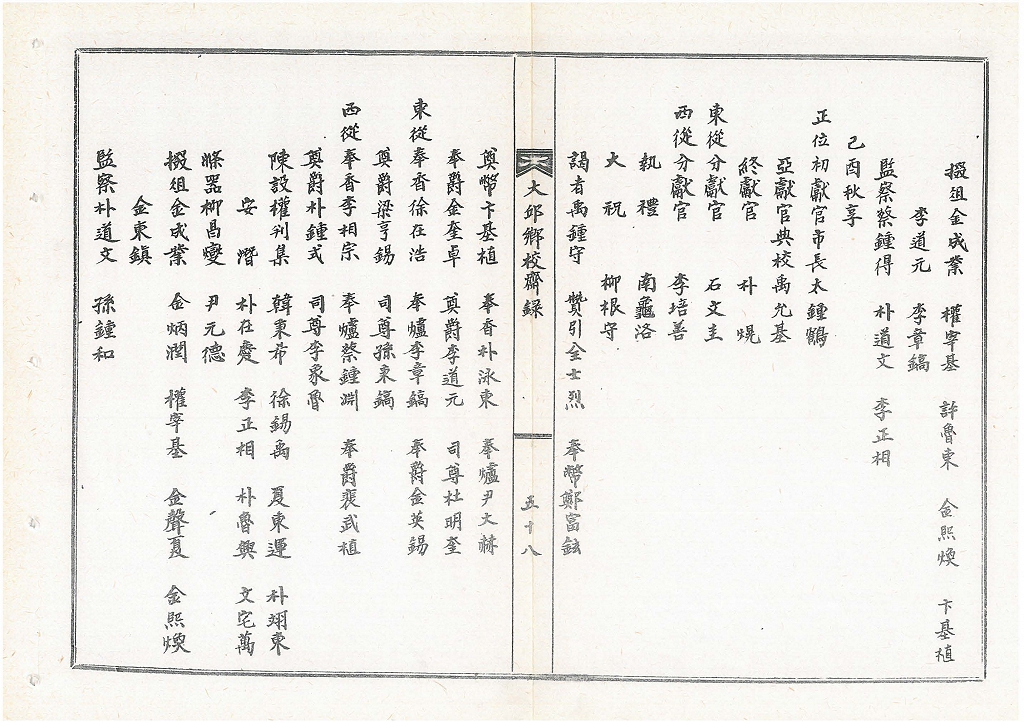 掇俎金成業 權寧基 許魯東 金熙煥 卞基植
李道元 李章鎬
監察蔡鍾得 朴道文 李正相
己酉秋享
正位初獻官市長太鍾鶴
亞獻官典校禹允基
終獻官 朴 熀
東從分獻官 石文圭
西從分獻官 李培善
執禮 南龜洛
大祝 柳根守
謁者禹鍾守 贊引全士烈 奉幣鄭富鉉
大邱鄕校齋錄
五十八
奠幣卞基植 奉香朴泳東 奉爐尹大赫
奉爵金奎卓 奠爵李道元 司尊杜明奎
東從奉香徐在浩 奉爐李章鎬 奉爵金英錫
奠爵梁亨錫 司尊孫東鎬
西從奉香李相宗 奉爐蔡鍾淵 奉爵裵武植
奠爵朴鍾式 司尊李象魯
陳設權刋集 韓東希 徐錫禹 夏東運 朴翊東
安 潛 朴在慶 李正相 朴魯興 文宅萬
滌器柳昌燮 尹元德
掇俎金成業 金炳潤 權寧基 金聲夏 金熙煥
金東鎭
監察朴道文 孫鍾和